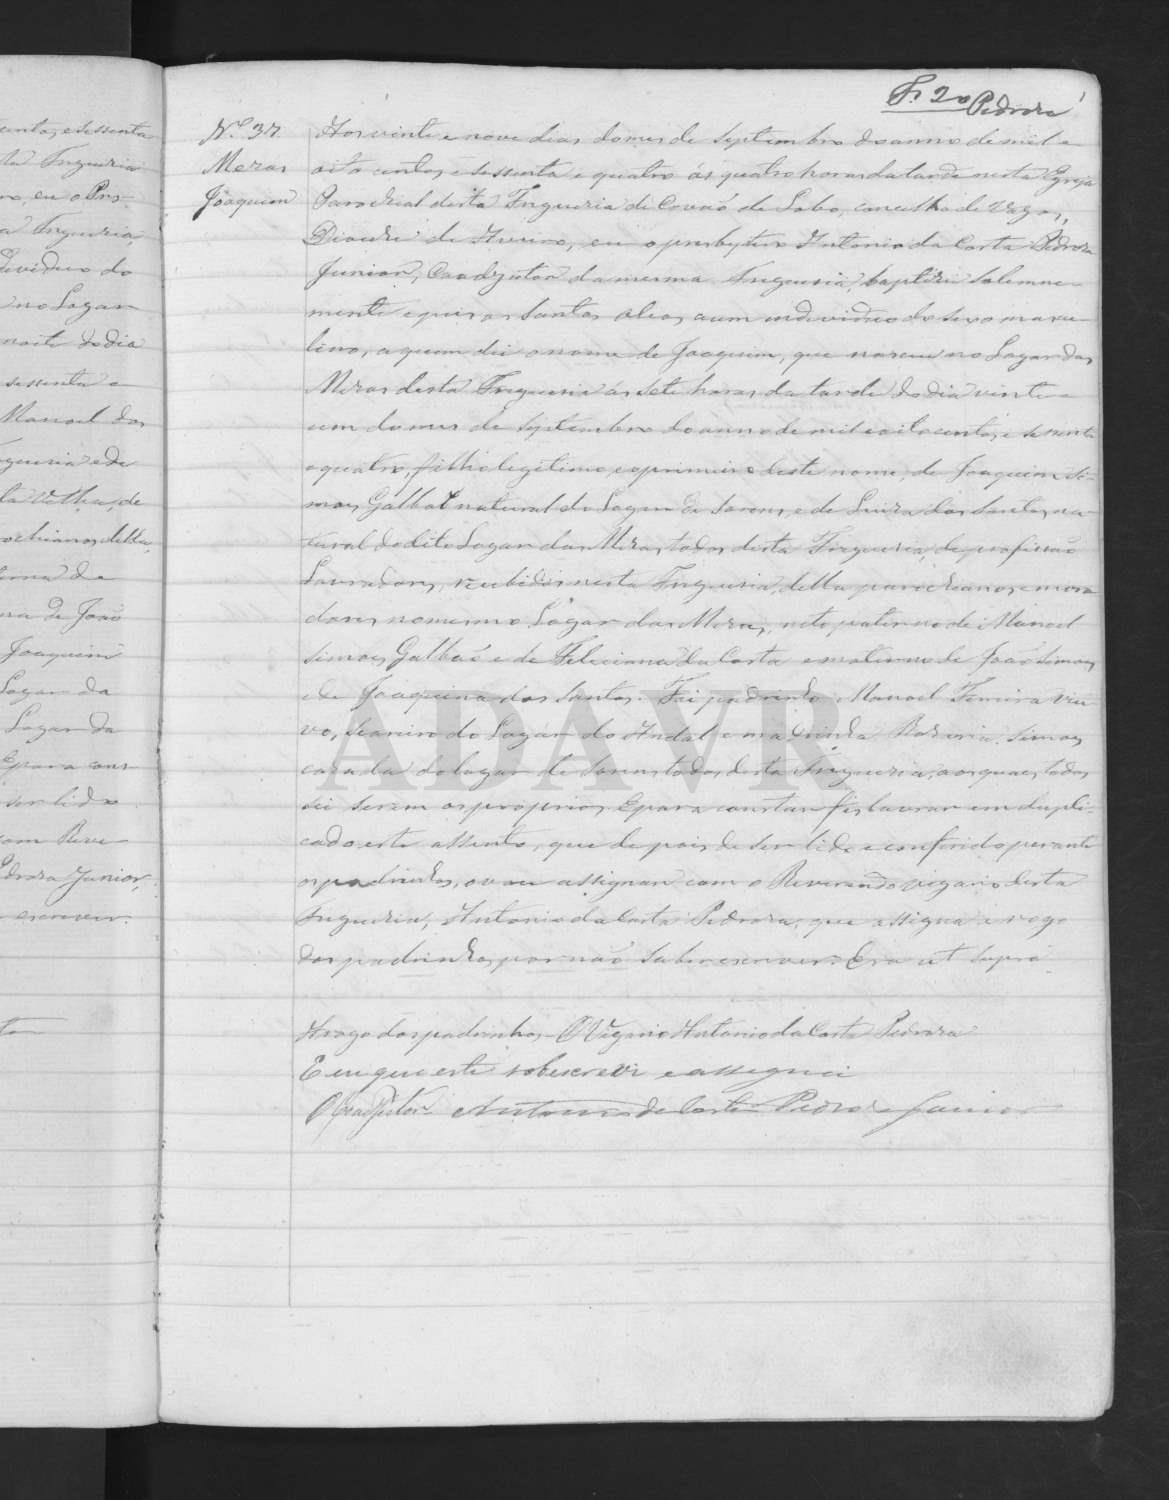 Fl 20 Pedroza
Nº 37
Meras
Joaquim
Aos vinte e nove dias do mes de Septembro do anno de mil e
oito centos e sessenta e quatro ás quatro horas da tarde nesta Egreja
Parochial desta Freguesia de Covaõ do Lobo, concelho de Vagos,
Diocese de Aveiro, eu o presbytero Antonio da Costa Pedroza
Junior, Coadjutor da mesma Freguesia, baptizei solemne-
mente e puz os santos oleos a um individuo do sexo mascu-
lino, a quem dei o nome de Joaquim, que nasceu no Lugar das
Meras desta Freguesia ás sete horas da tarde do dia vinte e
um do mes de Septembro do anno de mil e oito centos e sessenta
e quatro, filho legitimo, e o primeiro deste nome, de Joaquim Si-
moes Galhaõ natural do Lugar de e de Luiza dos Santos na-
tural do dito Lugar das Meras, todos desta Freguesia, de profissaõ
Lavradores, recebidos nesta Freguesia, della parochianos e mora
dores no mesmo Lugar das Meras, neto paterno de Manoel
Simoes Galhaõ e de Feliciana da Costa e materno de Joaõ Simoes
e de Joaquina dos Santos. Foi padrinho Manoel Ferreira viu-
vo, do Lugar do Andal e madrinha Simoes
casada do lugar de todos desta Freguesia, aos quaes todos
sei serem os proprios. E para constar fiz lavrar em dupli-
cado este assento, que depois de ser lido e conferido perante
os padrinhos, o vou assignar com o Reverendo vigario desta
Freguesia, Antonio da Costa Pedroza, que assigna a rogo
dos padrinhos por naõ saberem escrever. Era ut supra
A rogo dos padrinhos – O Vigario Antonio da Costa Pedroza
E eu que este sobescrevi e assignei
O Coadjutor Antonio da Costa Pedroza Junior
ADAVR
sessenta
Freguesia
Freguesia
individuo do
no Lugar
noite do dia
sessenta e
Manoel dos
parochianos della,
de Joaõ
Joaquim
Lugar da
Lugar da
E para cons-
ser lido
com Reve-
Pedroza Junior,
escrever.